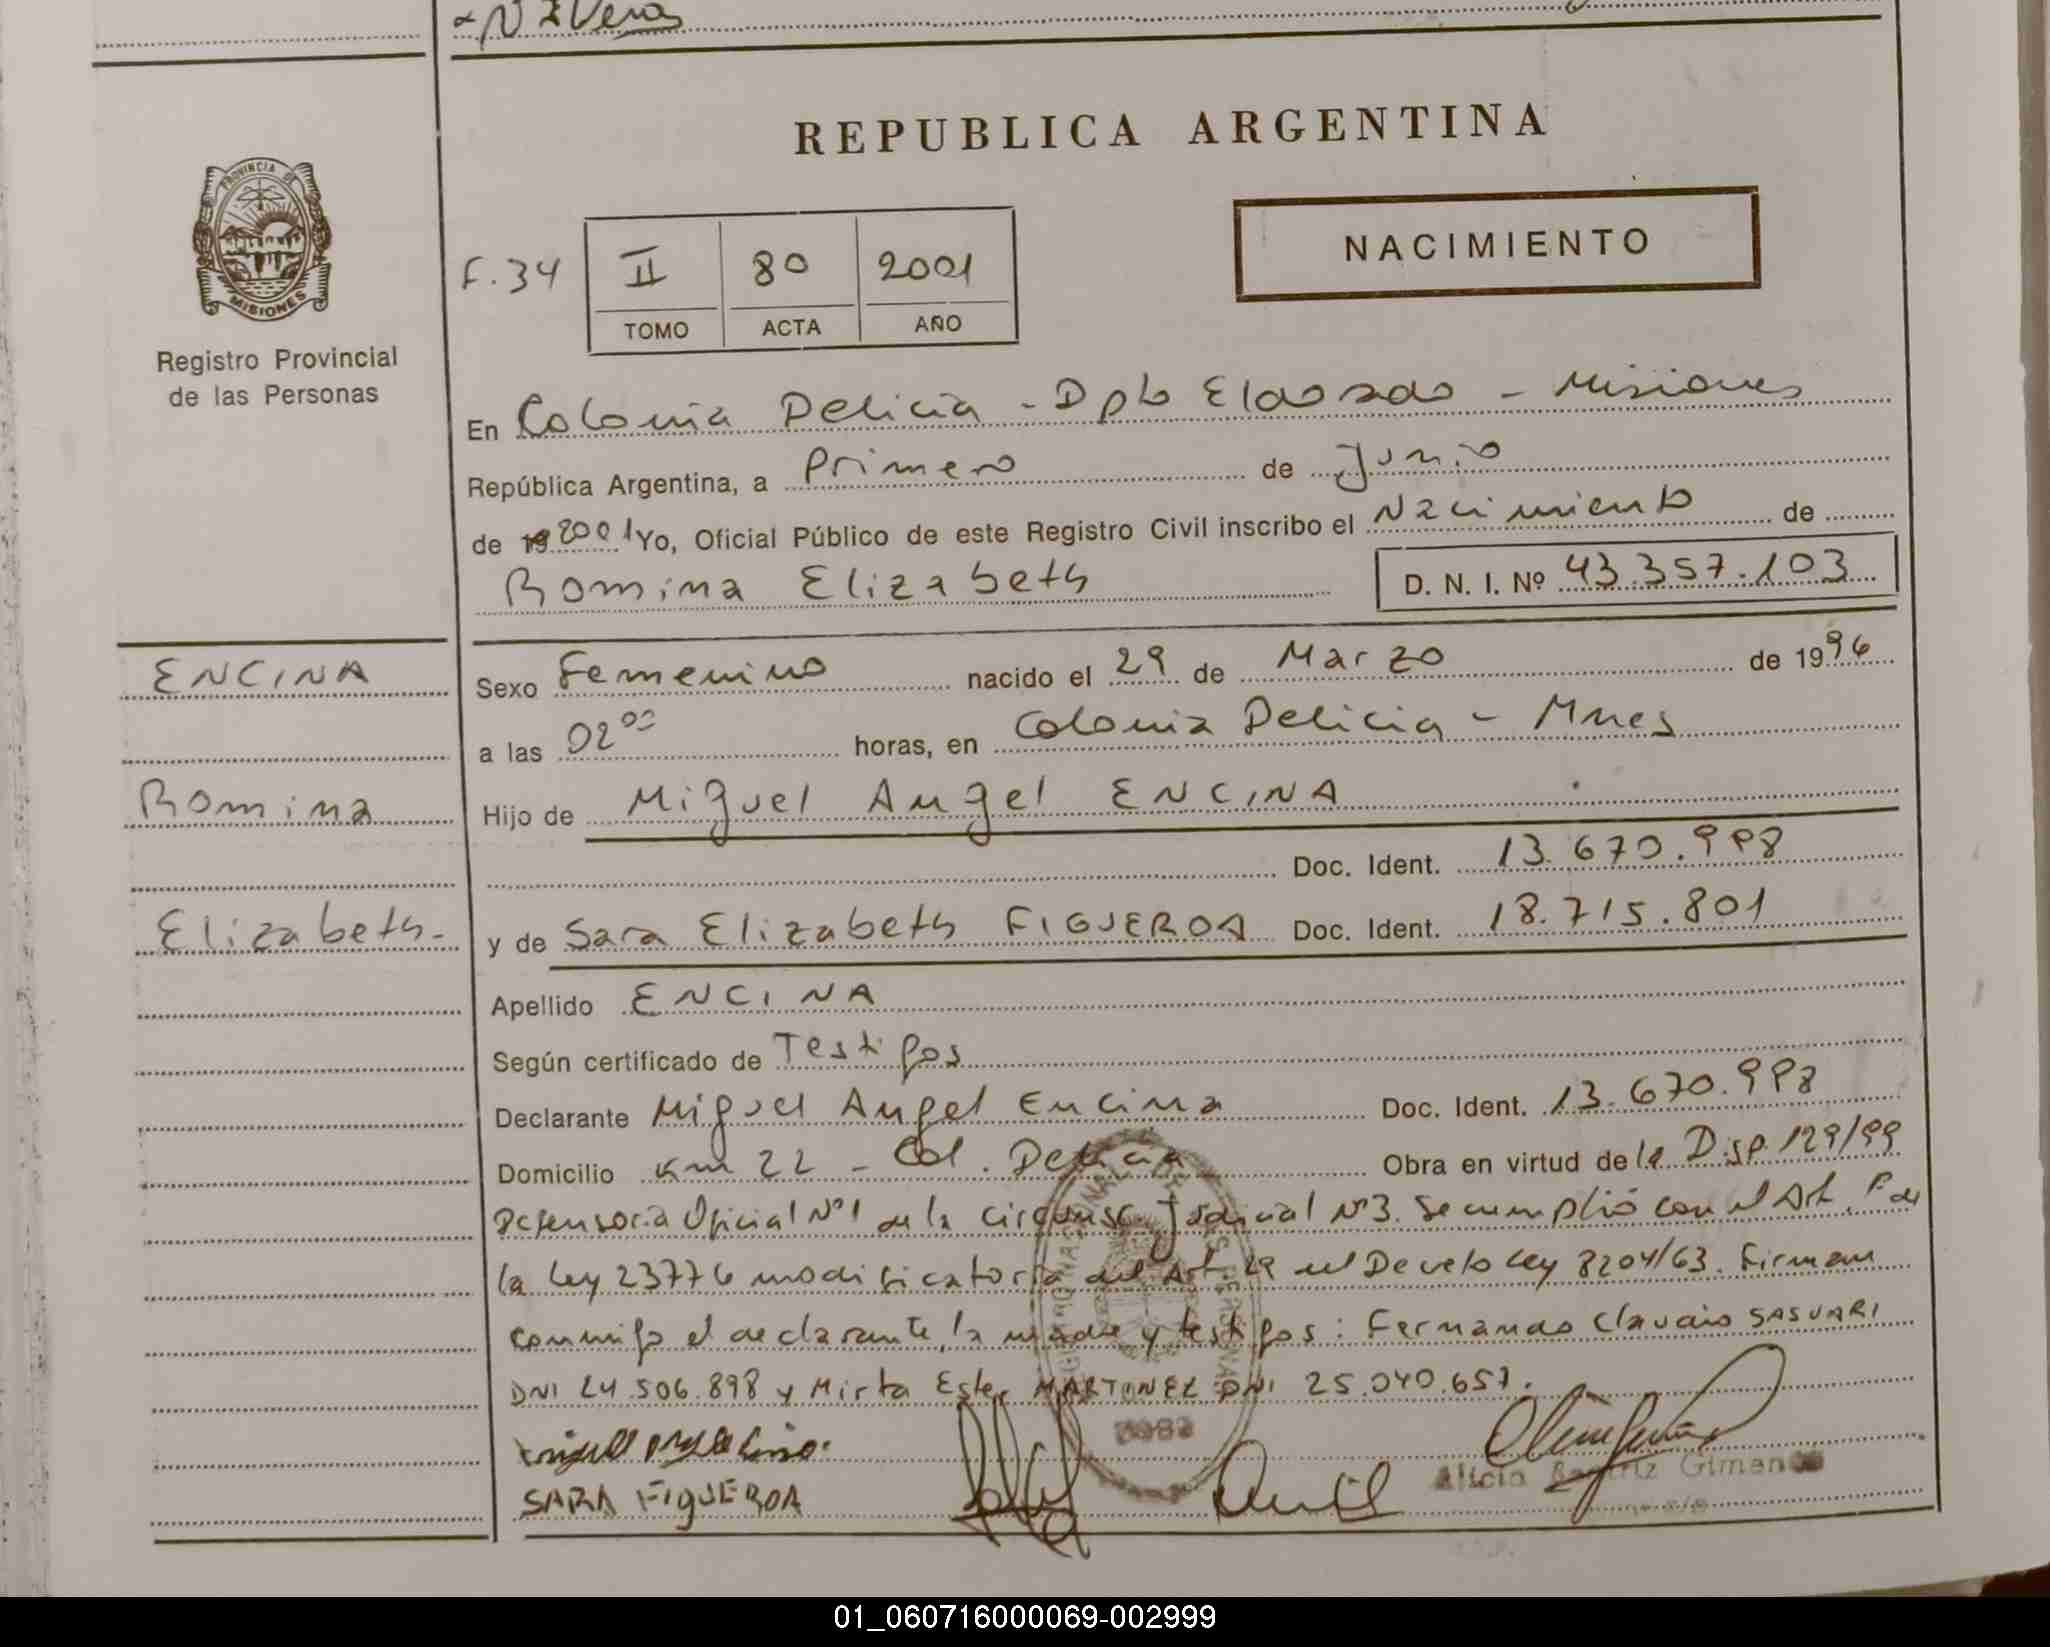 REPUBLICA ARGENTINA
PROVINCIA DE
MISIONES
Registro Provincial
de las Personas
NACIMIENTO
F.34 II 80 2001
TOMO ACTA AÑO
En Colonia Delicia - Dpto Eldorado - Misiones
República Argentina, a Primero de Junio
de 19 2001 Yo, Oficial Público de este Registro Civil inscribo el Nacimiento de
Romina Elizabeth D. N. I. Nº 43.357.103
ENCINA
Romina
Elizabeth-
Sexo Femenino nacido el 29 de Marzo de 1996
a las 02 00 horas, en Colonia Delicia - Mnes
Hijo de Miguel Angel ENCINA
Doc. Ident. 13.670.998
y de Sara Elizabeth FIGUEROA Doc. Ident. 18.715.801
Apellido ENCINA
Según certificado de Testigos
Declarante Miguel Angel Encina Doc. Ident. 13.670.998
Domicilio Km 22 - Col. Delicia Obra en virtud de la Disp. 129/99
Defensoria Oficial Nº1 de la Circunsc. Judicial Nº3. Se cumplió con el Art. de
la Ley 23776 modificatoria del Art. 29 del Decreto Ley 8204/63. Firman
conmigo el declarante, la madre y testigos: Fernando Claudio SASUARI
DNI 24.506.898 y Mirta Ester MARTINEZ DNI 25.040.657.
SARA FIGUEROA
Alicia Beatriz Gimenez
01_060716000069-002999